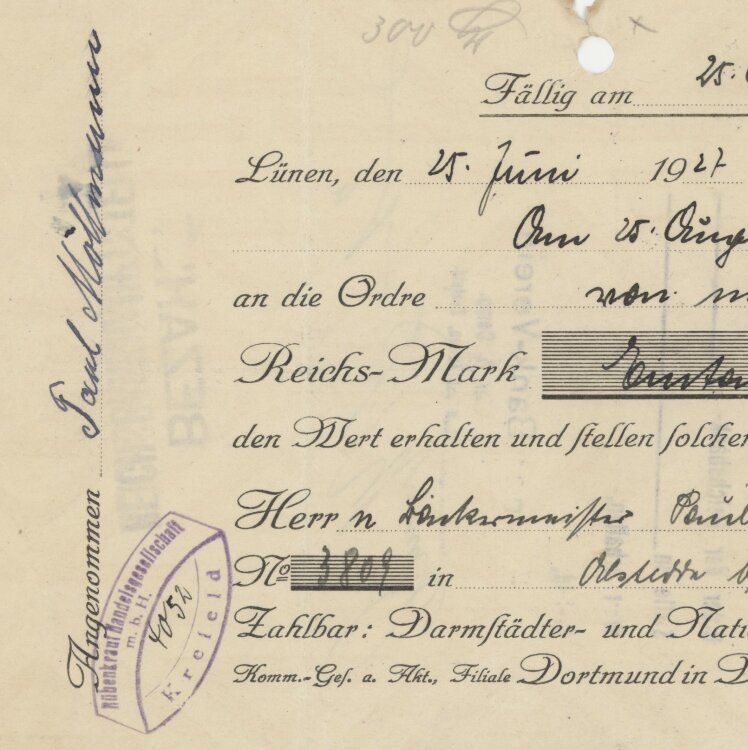 300
Fällig am 25.
Lünen, den 25. Juni 1927
Am 25. Aug
an die Ordre von m
Reichs-Mark Einta
den Wert erhalten und ſtellen ſolchen
Herr n Bäckermeister Paul
No 3809 in Alstedde
Zahlbar: Darmſtädter- und Nati
Komm.-Geſ. a. Akt., Filiale Dortmund in D
Angenommen Paul Möllmann
Rübenkraut Handelsgesellschaft
m. b. H.
4052
Krefeld